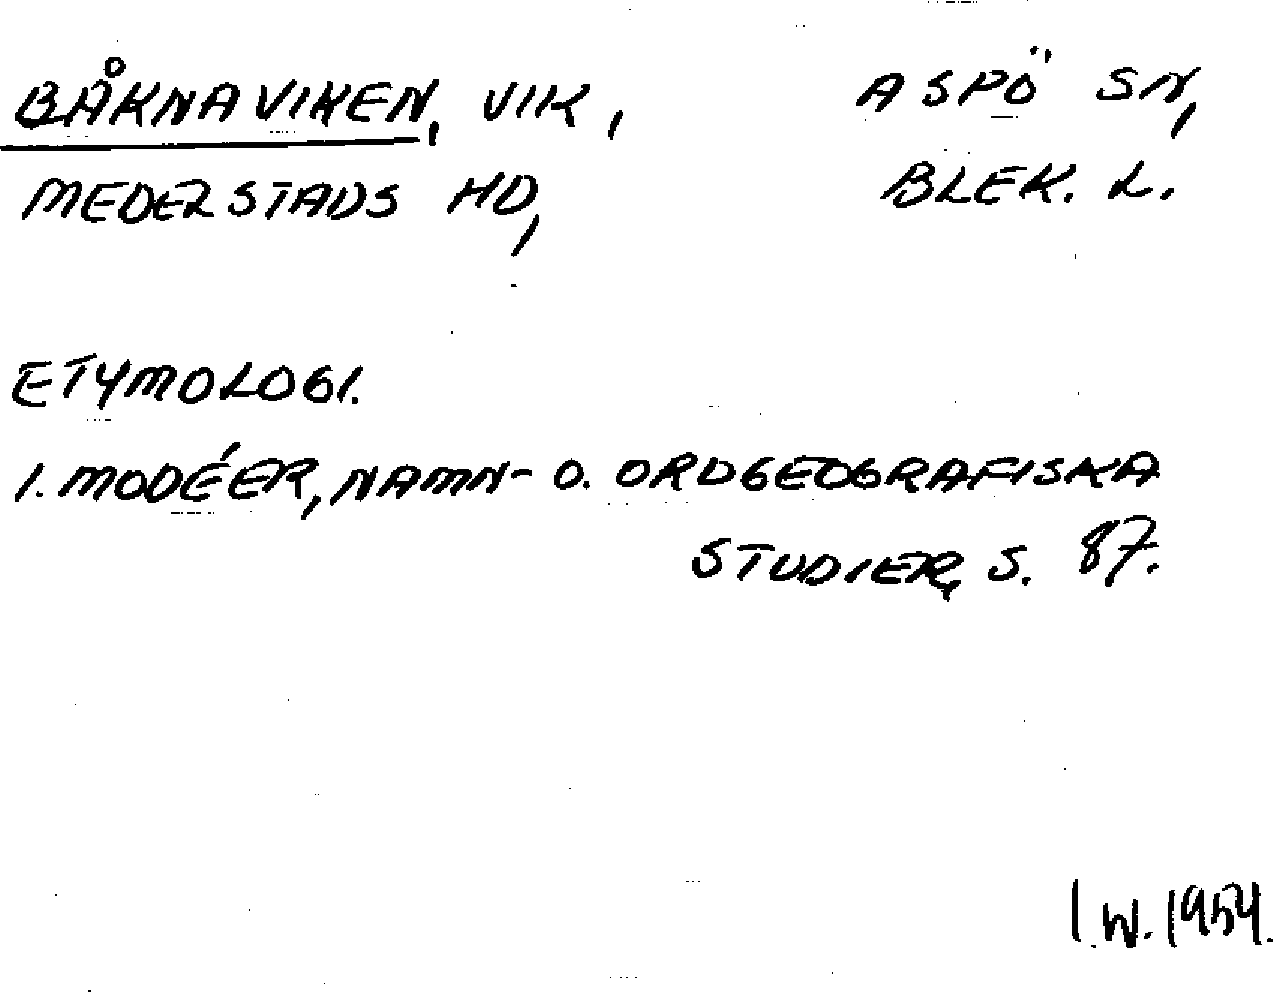 BÅKNAVIKEN, VIK, ASPÖ SN,
MEDELSTADS HD, BLEK. L.
ETYMOLOGI.
I. MODÉER, NAMN- O. ORDGEOGRAFISKA
STUDIER, S. 87.
I.W. 1954.